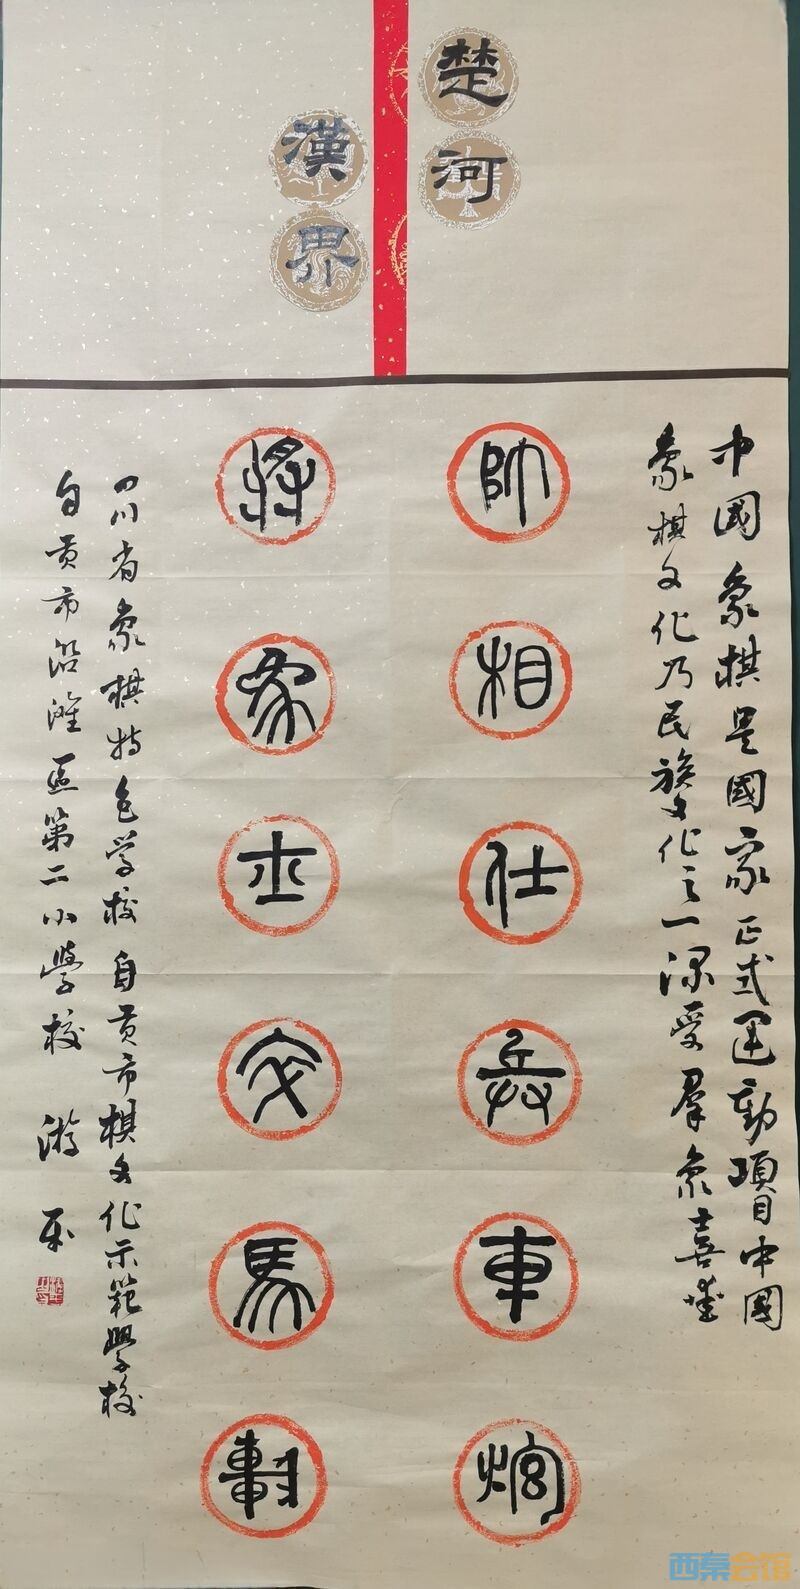 楚河
漢界
中國象棋是國家正式運動項目中國
象棋文化乃民族文化之一深受羣衆喜愛
帥相仕兵車炮
將象士卒馬
四川省象棋特色学校 自贡市棋文化示範學校
自贡市沿滩區第二小學校 游
西秦会馆